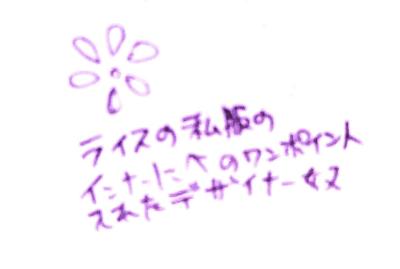 ライスの私服の
インナーにへのワンポイント
スネたデザイナーズ